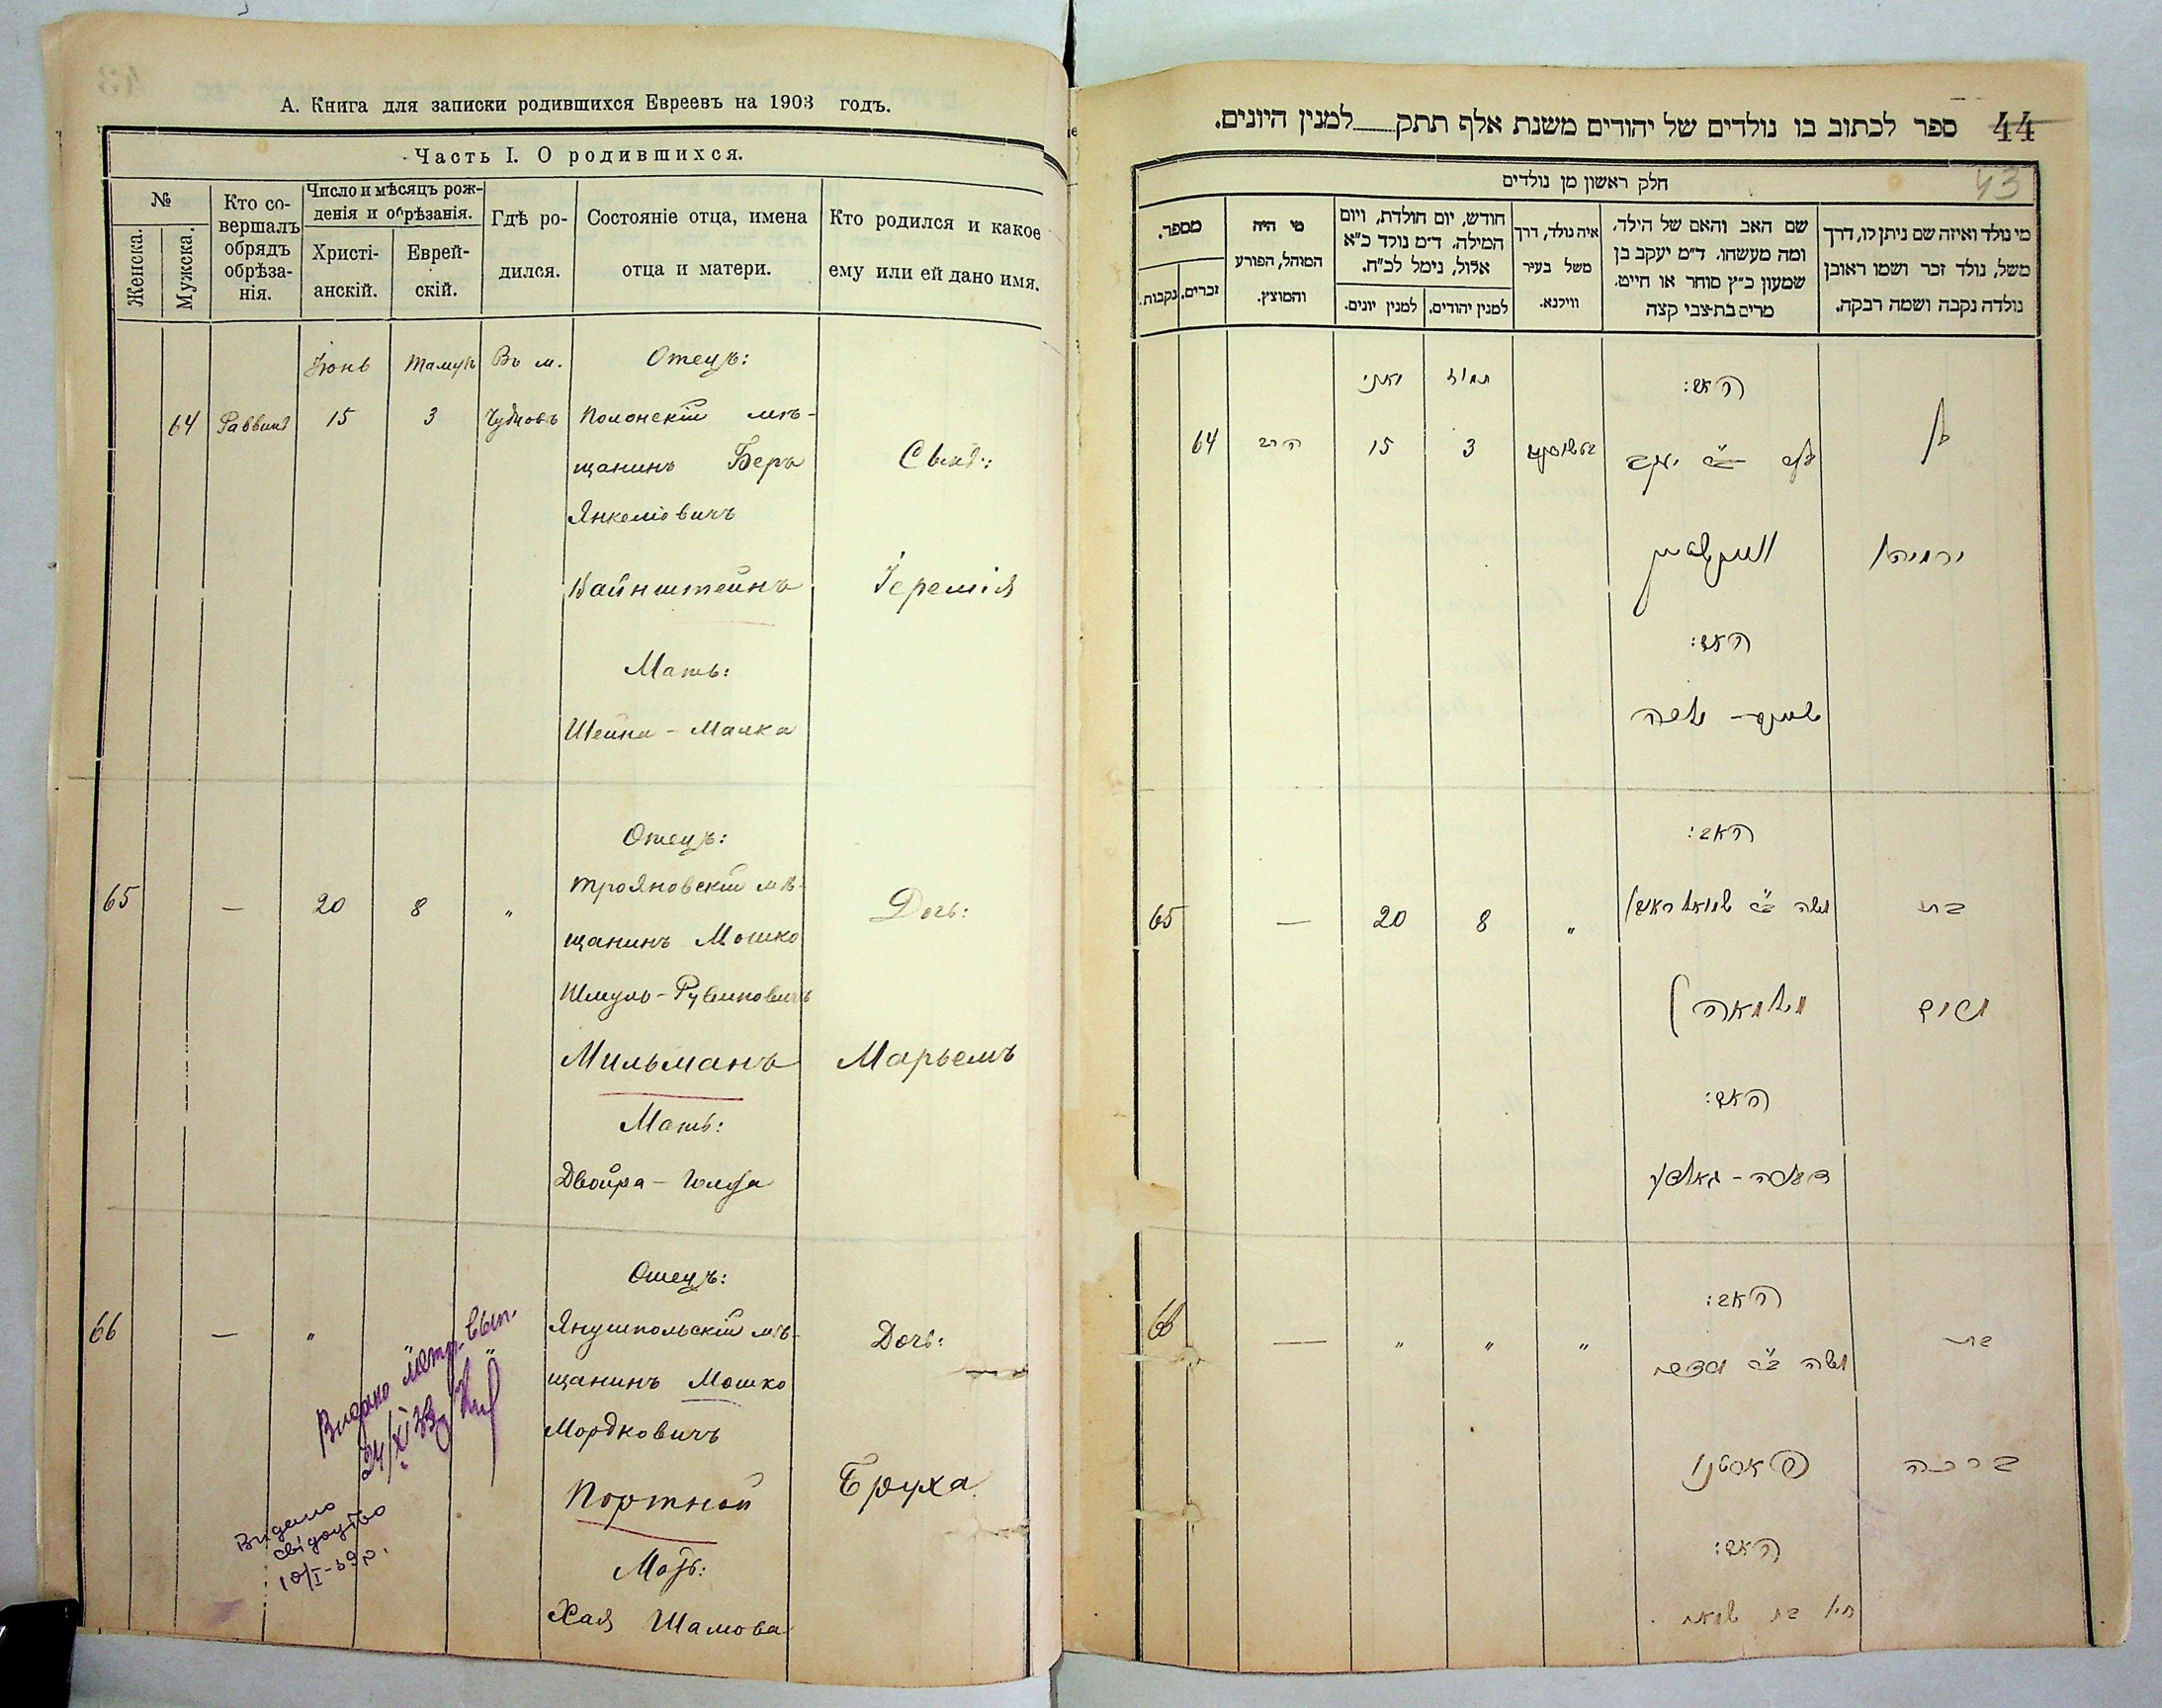 А. Книга для записки родившихся Евреевъ на 1903 годъ.
Часть I. О родившихся.
№
Женска.
Мужска.
Кто со-
вершалъ
обрядъ
обрѣза-
нія.
Число и мѣсяцъ рож-
денія и обрѣзанія.
Христі-
анскій.
Еврей-
скій.
Гдѣ ро-
дился.
Состояніе отца, имена
отца и матери.
Кто родился и какое
ему или ей дано имя.
Іюнь Тамузъ Въ м. Отецъ:
64 Раввинъ 15 3 Чудновъ Полонскій мѣ-
щанинъ Беръ Сынъ:
Янкелiовичъ
Вайнштейнъ Іеремія
Мать:
Шейна - Малка
Отецъ:
65 — 20 8 „ Трояновскій мѣ- Дочь:
щанинъ Мошко
Шмуль - Рувиновичъ
Мильманъ Марьемъ
Мать:
Двойра - Голда
Отецъ:
66 — „ „ Янушпольскій мѣ- Дочь:
щанинъ Мошко
Мордковичъ
Портной Бруха
Мать:
Хая Шамова
Видано метр. вып.
Видано
свідоцтво
10/I-39 р.
44
ספר לכתוב בו נולדים של יהודים משנת אלף תתק למנין היונים.
43
חלק ראשון מן נולדים
מי נולד ואיזה שם ניתן לו, דרך
משל, נולד זכר ושמו ראובן
נולדה נקבה ושמה רבקה.
שם האב והאם של הילד,
ומה מעשהו. ד״מ יעקב בן
שמעון כ״ץ סוחר או חייט,
מרים בת-צבי קצה
איה נולד, דרך
משל בעיר
ווילנא.
חודש, יום הולדת, ויום
המילה. ד״מ נולד כ״א
אלול, נימל לכ״ח.
למנין יהודים.
למנין יונים.
מי היה
המוהל, הפורע
והמוצץ.
מספר.
זכרים.
נקבות.
תמוז יוני האב:
בן
64 הרב 15 3 בער ב״ר יעקב
וויינשטיין ירמיהו
האם:
שיינה - מלכה
האב:
65 — 20 8 „ משה ב״ר שמואל ראובן בת
מילמאן מרים
האם:
דבורה - גאלדע
האב:
66 — „ „ „ משה ב״ר מרדכי בת
פארטנוי ברכה
האם:
חיה בת